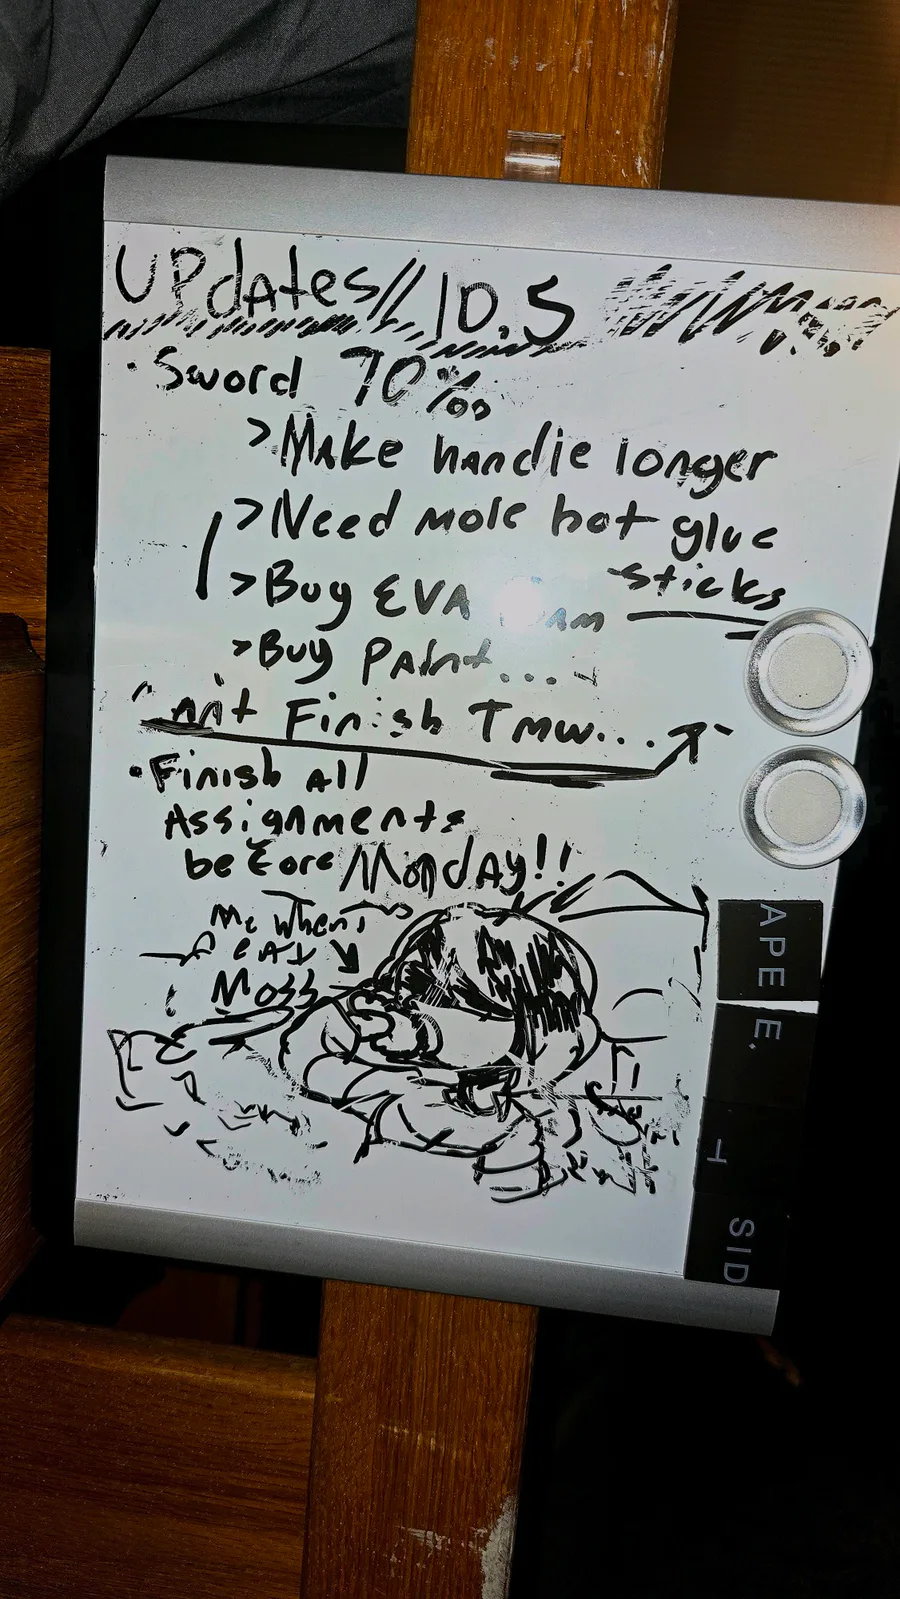 Updates// 10.5
• Sword 70%
> Make handle longer
> Need more hot glue
sticks
> Buy EVA foam
> Buy Paint....
Finish Tmw...
• Finish all
Assignments
before Monday!!
Me when
I eat
Moss
APE
E.
SID